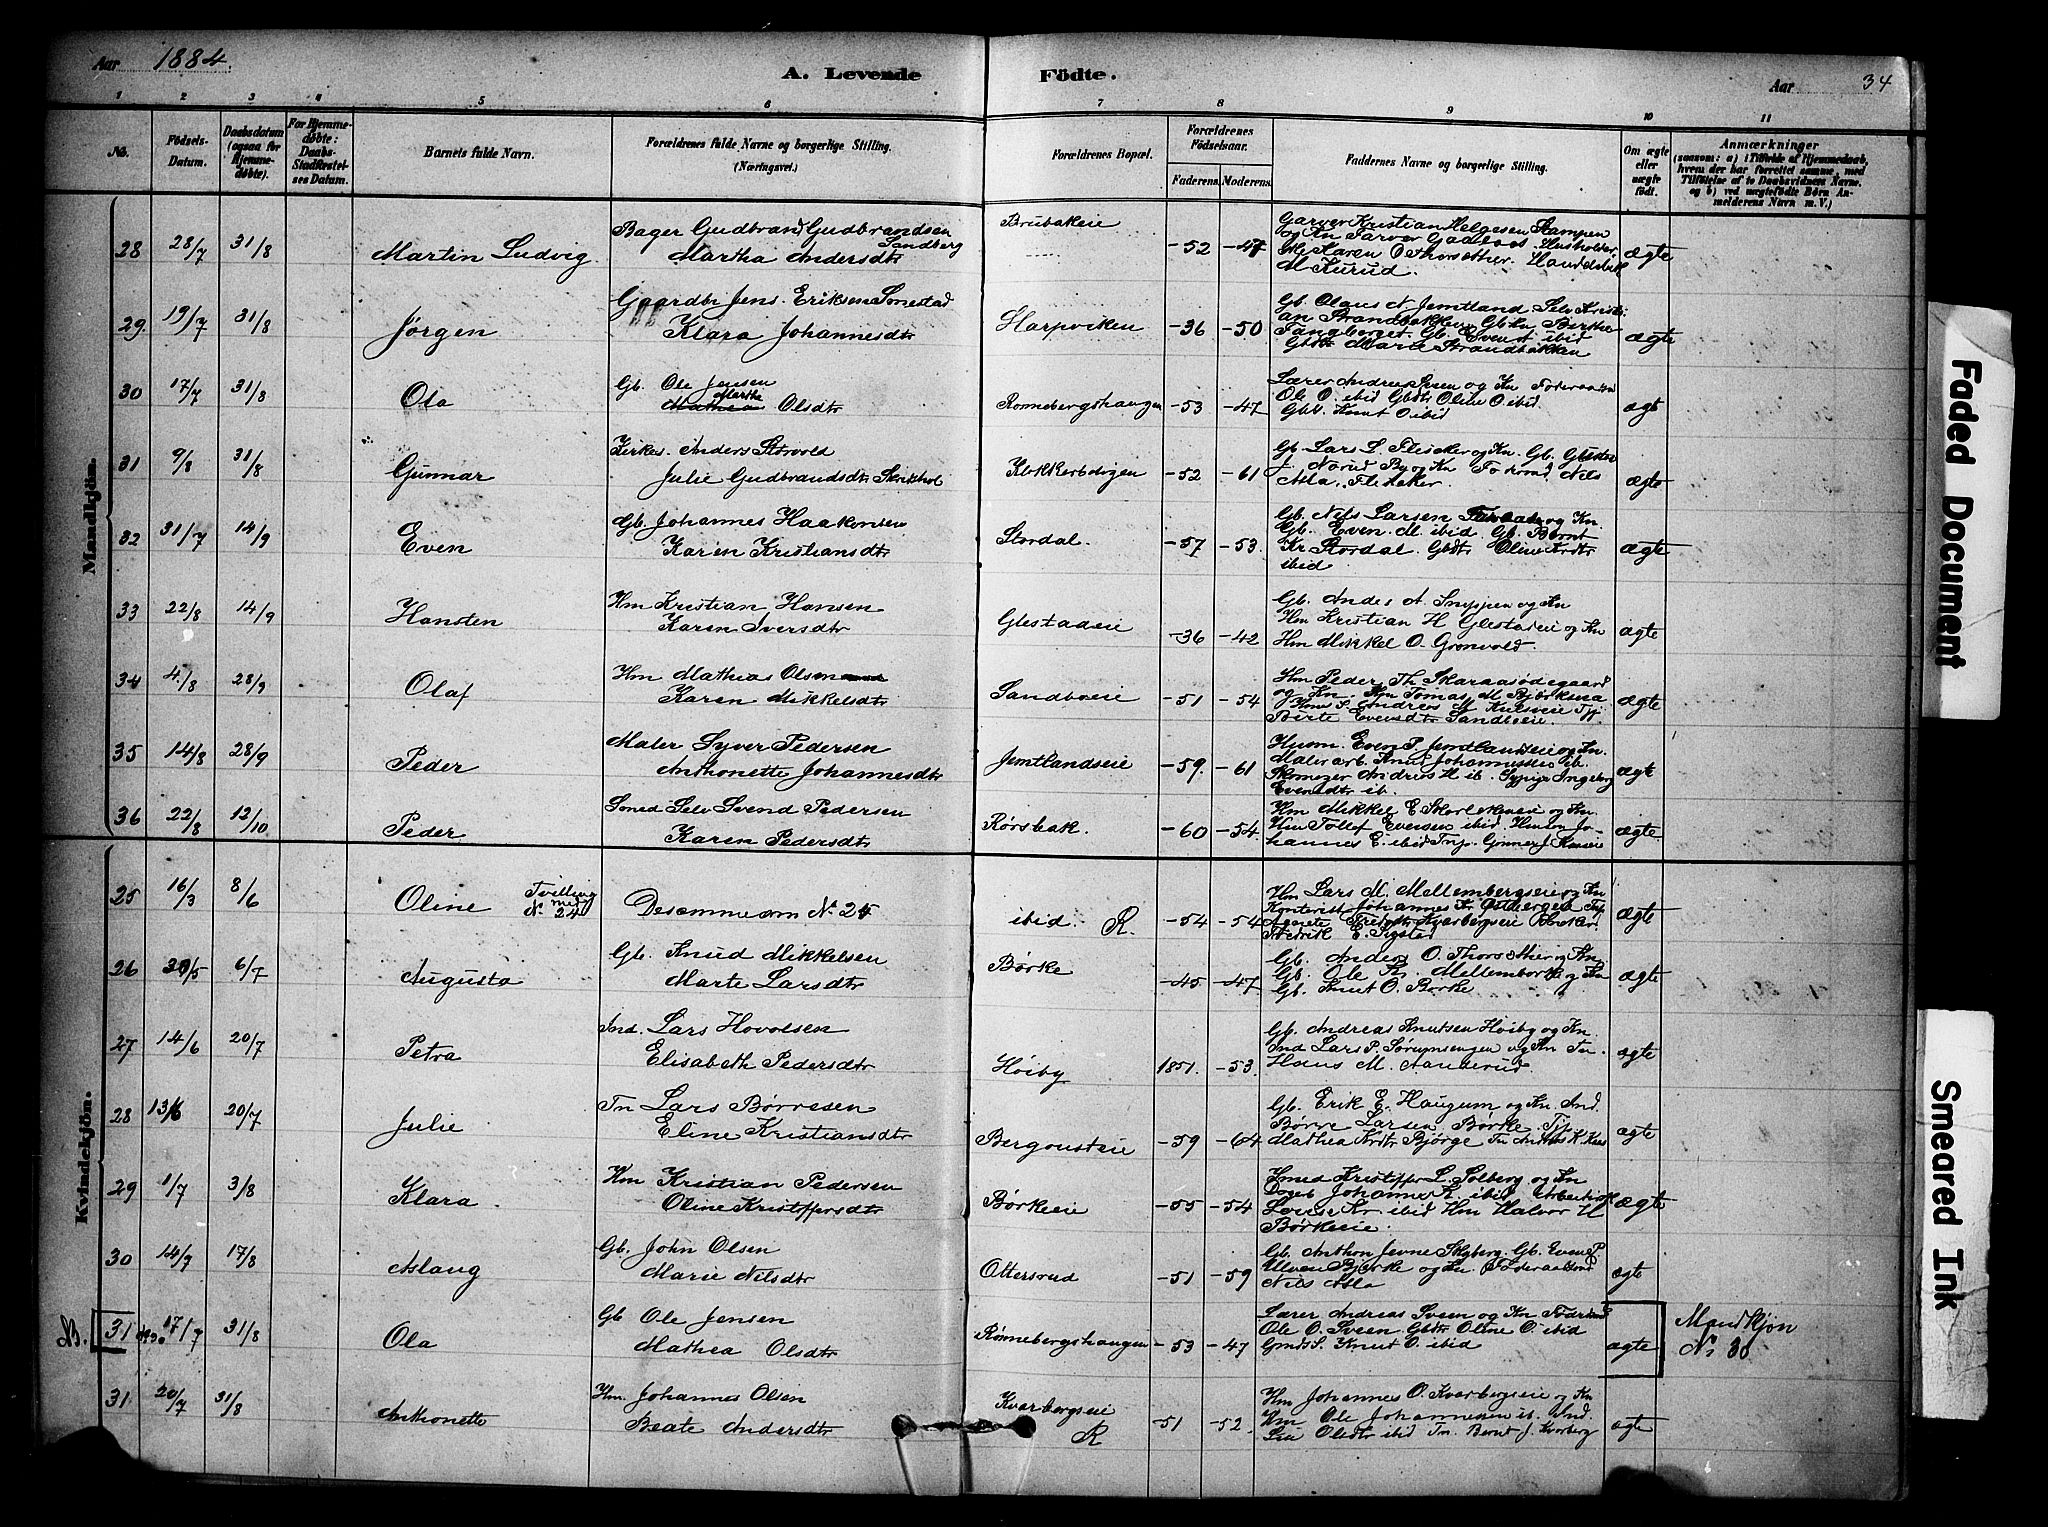 Aar 1884. A. Levende Födte. Aar 34
1 2 3 4 5 6 7 8 9 10 11
No. Födsels-Datum. Daabsdatum (ogsaa for Hjemmedøbte). For Hjemmedøbte: Daabs-Stadfæstelses Datum. Barnets fulde Navn. Forældrenes fulde Navne og borgerlige Stilling. (Næringsvei.) Forældrenes Bopæl. Forældrenes Födselsaar. Faderens. Moderens. Faddernes Navne og borgerlige Stilling. Om ægte eller uægte födt. Anmærkninger (saasom: a) i Tilfælde af Hjemmedaab, hvem der har forrettet samme, med Tilföielse af to Daabsvidners Navne. og b) ved uægtefödte Börn Anmelderens Navn m. V.)
Mandkjön.
28 28/7 31/8 Martin Ludvig. Bager Gudbrand Gudbrandsen Sandberg
Martha Andersdtr Brubakeie -52 -47 Garver Kristian Helgesen Stampen
og Kn Farver Gaalaas. Husholder
Karen O Thorsæther.
M Kurud. ægte
29 19/7 31/8 Jørgen Gaardbr Jens Eriksen Sonestad
Klara Johannesdtr Harpviken -36 -50 Gb. Olaus N Jemtland Selv Kristi
an Strandbakken Gbkn Birthe
Tangborget. Gb. Even ibid
Gbdtr Marie Strandbakken ægte
30 17/7 31/8 Ola Gb. Ole Jensen
Marthe
Mathea Olsdtr Rønnebergshaugen -53 -47 Lærer Andreas Sveen og Kn Føderaadsm
Ole O. ibid Gbdtr Oline O ibid.
Gbs. Knut O ibid ægt
31 9/8 31/8 Gunnar Kirkes. Anders Storvold
Julie Gudbrandsdtr Skrikhol Klokkerbolgen -52 -61 Gb. Lars L. Flisaker og Kn. Gb.
J. Norud
Atla, Flisaker. ægte
32 31/7 14/9 Even Gb. Johannes Haakensen
Karen Kristiansdtr Stordal. -57 -53. Gb. Nils Larsen og Kn.
Gb. Even M. ibid Gb. Bernt
Kr Stordal. Gbdtr Oline Krdtr
ibid ægte
33 22/8 14/9 Hansten Hm Kristian Hansen
Karen Iversdtr Glestadeie -36 -42 Gb. Andes A. Snippen og Kn
Hm Kristian H Glestadeie og Kn
Hm Mikkel O. Grønvold. ægte
34 4/8 28/9 Olaf Hm Mathias Olsen
Karen Mikkelsdtr Sandboeie -51 -54 Hm Peder Th Skaraasødegaard
og Kn. Hm Tomas M. Bjørkseie
Hms S. Andreas M. Kulseie Tyj
Birte Evensdtr Sandboeie ægte
35 14/8 28/9 Peder Maler Syver Pedersen
Anthonette Johannesdtr Jemtlandseie -59. -61 Husm. Even P. Jemtlandseie og Kn.
Malerarb. Knut Johannessen ib.
Skomager Andreas H ib. Sypige Ingeborg
Evensdtr ib. ægte
36 22/8 12/10 Peder Smed Selv Svend Pedersen
Karen Pedersdtr Rørsbak. -60 -54 Hm Mikkel E og Kn
Hm Tollef Evensen ibid. Hmsøn Jo-
hannes E. ibid Tnp. Gunner J. ægte
Kvindekjön.
25 16/3 8/6 Oline Tvilling
med
No 24 Desamme som No 25 ibid. R. -54 -54 Hm Lars M. Mellembergseie og Kn
Kontorist Johannes Kr Østbergeie Tnp
Agnete Fredrdtr Kvarbergseie
Fredrik E. Sigstad ægte
26 30/5 6/7 Augusta Gb. Knud Mikkelsen
Marte Larsdtr Børke -45 -47 Gb. Anders O. Thorsæther og Kn
Gb. Ole Kr. Mellemborke og Kn
Gb. Knut O. Børke ægte
27 14/6 20/7 Petra Ind. Lars Hovolsen
Elisabeth Pedersdtr Høiby 1851. -53. Gb. Andreas Knutsen Høiby og Kn.
Ind Lars P. Sørumsengen og Kn Tn.
Hans M. Aanderud. ægte
28 13/6 20/7 Julie Tn Lars Børresen
Eline Kristiansdtr Bergousteie -59 -64 Gb. Erik E. Haugum og Kn. Ind.
Børre Larsen Børke Tyj
Mathea Krdtr Bjørge Tn ægte
29 1/7 3/8 Klara. Hm Kristian Pedersen
Oline Kristoffersdtr Børkeie -55 -54 Smed Kristoffer L. Solberg og Kn
Johannes K ibid
Lovise Kr. ibid Hm Halvor H
Børkeeie. ægte
30 14/7 17/8 Aslaug Gb. John Olsen
Marie Nilsdtr Ottersrud -51 -59 Gb. Anthon Jevne Skyberg. Gb. Even P.
Ulven Bjørke og Kn. Føderaadsm
Nils Atla ægte
B. 31 17/7 31/8 Ola Gb Ole Jensen
Mathea Olsdtr Rønnebergshaugen -53 -47 Lærer Andreas Sveen og Kn Føderaad
Ole O. Sveen. Gbdtr Oline O. ibid
Gmds S. Knut O. ibid ægte Mandkjøn
No 30
31 20/7 31/8 Anthonette Hm. Johannes Olsen
Beate Andersdtr Kvarbergseie
R -51 -52. Hm Johannes O. Kvarbergseie og Kn
Hm Ole Johannessen ib. Ind.
Siri Olsdtr ibid Tn. Bernt J. Kvarberg ægte
Faded Document
Smeared Ink